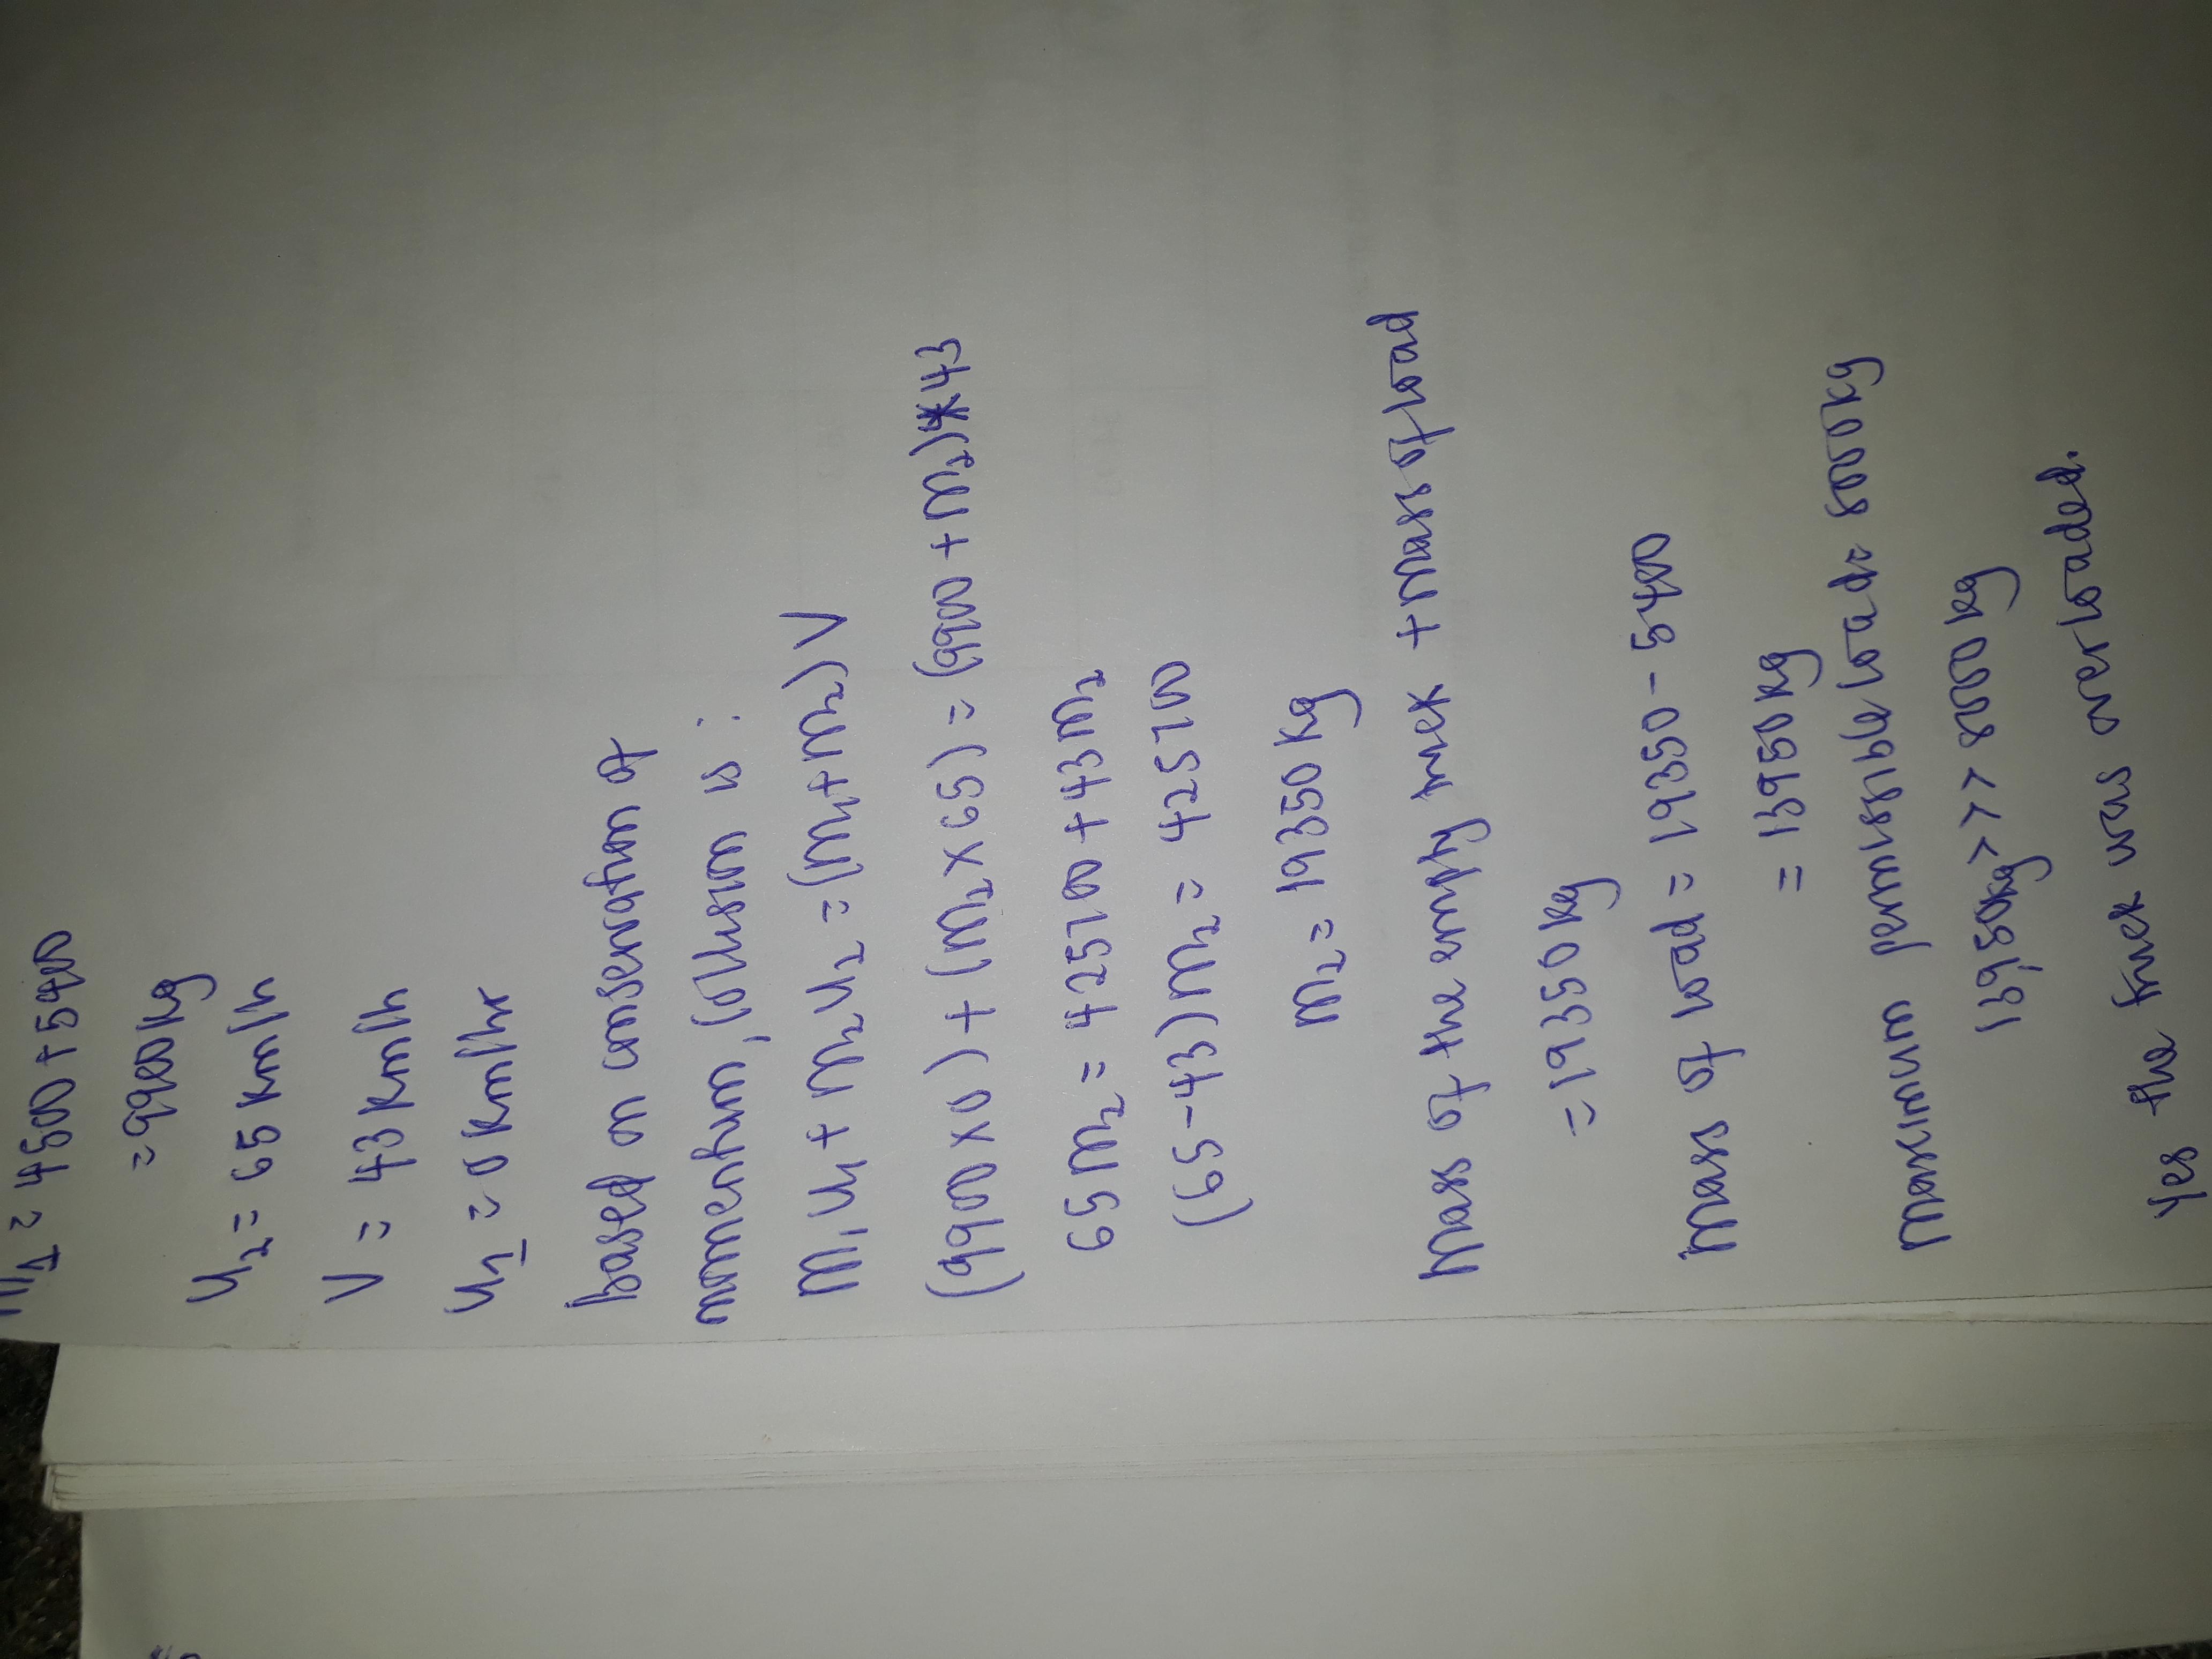 m1 = 4500 + 5400
= 9900 kg
u2 = 65 km/h
V = 43 km/h
u1 = 0 km/hr
based on conservation of
momentum, collision is :
m1u1 + m2u2 = (m1+m2) V
(9900 x 0) + (m2 x 65) = (9900 + m2) x 43
65 m2 = 425700 + 43m2
(65-43) m2 = 425700
m2 = 19350 kg
Mass of the empty truck + mass of load
= 19350 kg
Mass of load = 19350 - 5400
= 13950 kg
Maximum permissible load = 8000 kg
13950kg >>> 8000 kg
Yes the truck was overloaded.